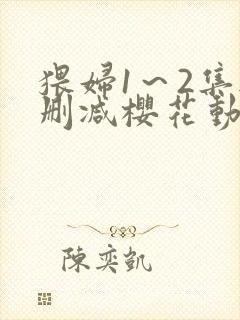 猥婦1~2集
刪減櫻花動
陳奕凱